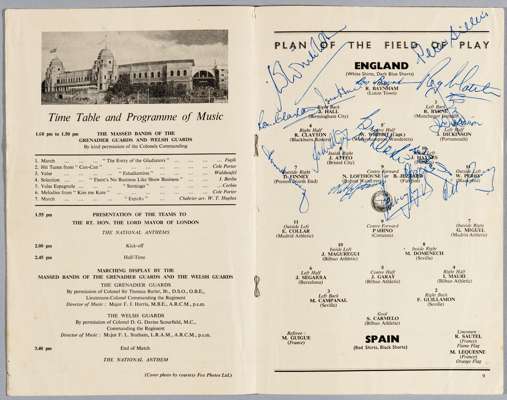 Time Table and Programme of Music
1.10 pm to 1.50 pm THE MASSED BANDS OF THE
GRENADIER GUARDS AND WELSH GUARDS
By kind permission of the Colonels Commanding
1. March "The Entry of the Gladiators" Fucik
2. Hit Tunes from "Can-Can" Cole Porter
3. Valse "Estudiantina" Waldteufel
4. Selection "There's No Business Like Show Business" I. Berlin
5. Valse Espagnole "Santiago" Corbin
6. Melodies from "Kiss me Kate" Cole Porter
7. March
1.55 pm PRESENTATION OF THE TEAMS TO
THE RT. HON. THE LORD MAYOR OF LONDON
THE NATIONAL ANTHEMS
2.00 pm Kick-off
2.45 pm Half-Time
MARCHING DISPLAY BY THE
MASSED BANDS OF THE GRENADIER GUARDS AND THE WELSH GUARDS
THE GRENADIER GUARDS
By permission of Colonel Sir Thomas Butler, Bt., D.S.O., O.B.E.,
Lieutenant-Colonel Commanding the Regiment
Director of Music : Major F. J. Harris, M.B.E., A.R.C.M., p.s.m.
THE WELSH GUARDS
By permission of Colonel D. G. Davies Scourfield, M.C.,
Commanding the Regiment
Director of Music : Major F. L. Statham, L.R.A.M., A.R.C.M., p.s.m.
3.40 pm End of Match
THE NATIONAL ANTHEM
(Cover photo by courtesy Fox Photos Ltd.)
PLAN OF THE FIELD OF PLAY
ENGLAND
(White Shirts, Dark Blue Shorts)
R. BAYNHAM
(Luton Town)
Right Back
J. HALL
(Birmingham City)
Left Back
R. BYRNE
(Manchester United)
Right Half
R. CLAYTON
(Blackburn Rovers)
Left Half
DICKINSON
(Portsmouth)
Inside Right
J. ATYEO
(Bristol City)
J. HAYNES
Outside Right
T. FINNEY
(Preston North End)
N. LOFTHOUSE
W. PERRY
11
Outside Left
E. COLLAR
(Madrid Athletic)
9
Centre Forward
PARINO
(Hercules)
7
Outside Right
G. MIGUEL
(Madrid Athletic)
10
Inside Left
J. MAGUREGUI
(Bilbao Athletic)
8
Inside Right
M. DOMENECH
(Seville)
6
Left Half
J. SEGARRA
(Barcelona)
5
Centre Half
J. GARAY
(Bilbao Athletic)
4
Right Half
I. MAURI
(Bilbao Athletic)
3
Left Back
M. CAMPANAL
(Seville)
2
Right Back
F. GUILLAMON
(Seville)
Goal
S. CARMELO
(Bilbao Athletic)
Referee :
M. GUIGUE
(France)
SPAIN
(Red Shirts, Black Shorts)
Linesmen :
R. SAUTEL
(France)
Flame Flag
M. LEQUESNE
(France)
Orange Flag
9